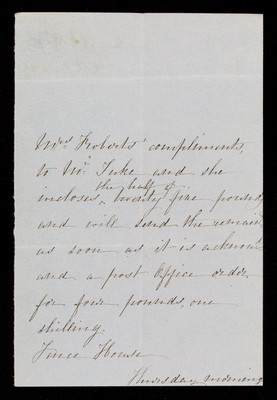 Mrs Roberts' compliments,
to Mr. Luke and she
incloses, the half of twenty five pounds,
and will send the remain
as soon as it is acknow
and a post Office order
for four pounds, one
shilling.
House
Thursday morning